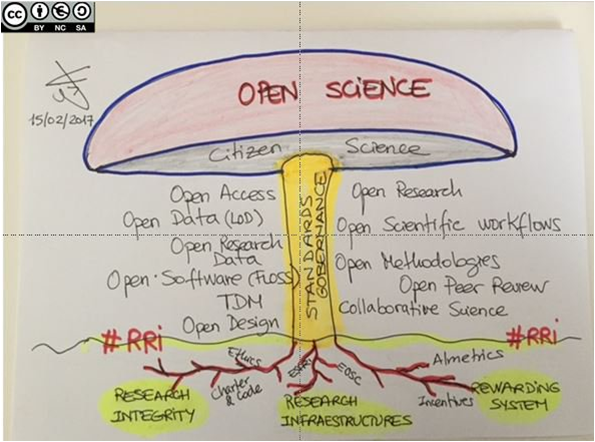 cc
BY NC SA
15/02/2017
OPEN SCIENCE
Citizen Science
Open Access
Open Data (LOD)
Open Research
Data
Open Software (FLOSS)
TDM
Open Design
STANDARDS
GOBERNANCE
Open Research
Open Scientific workflows
Open Methodologies
Open Peer Review
Collaborative Science
#RRi
#RRi
Ethics
Charter
& Code
RESEARCH
INTEGRITY
ESFRI
EOSC
RESEARCH
INFRAESTRUCTURES
Almetrics
Incentives
REWARDING
SYSTEM